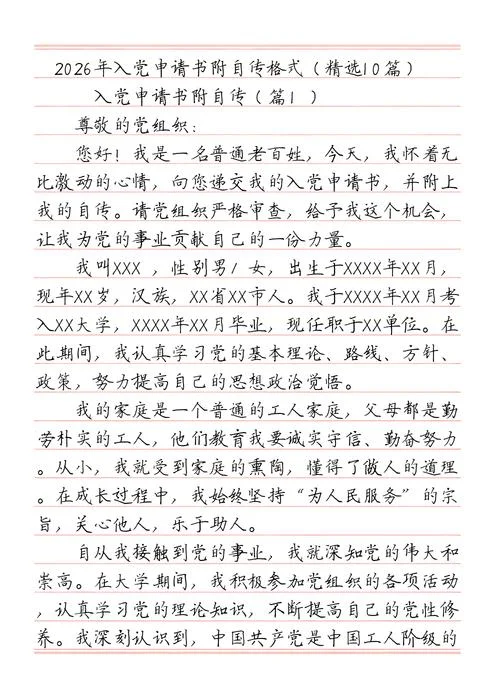 2026年入党申请书附自传格式（精选10篇）
入党申请书附自传（篇1 ）
尊敬的党组织：
您好！我是一名普通老百姓，今天，我怀着无
比激动的心情，向您递交我的入党申请书，并附上
我的自传。请党组织严格审查，给予我这个机会，
让我为党的事业贡献自己的一份力量。
我叫XXX ，性别男/ 女，出生于XXXX年XX月，
现年XX岁，汉族，XX省XX市人。我于XXXX年XX月考
入XX大学，XXXX年XX月毕业，现任职于XX单位。在
此期间，我认真学习党的基本理论、路线、方针、
政策，努力提高自己的思想政治觉悟。
我的家庭是一个普通的工人家庭，父母都是勤
劳朴实的工人，他们教育我要诚实守信、勤奋努力
。从小，我就受到家庭的熏陶，懂得了做人的道理
。在成长过程中，我始终坚持“为人民服务”的宗
旨，关心他人，乐于助人。
自从我接触到党的事业，我就深知党的伟大和
崇高。在大学期间，我积极参加党组织的各项活动
，认真学习党的理论知识，不断提高自己的党性修
养。我深刻认识到，中国共产党是中国工人阶级的